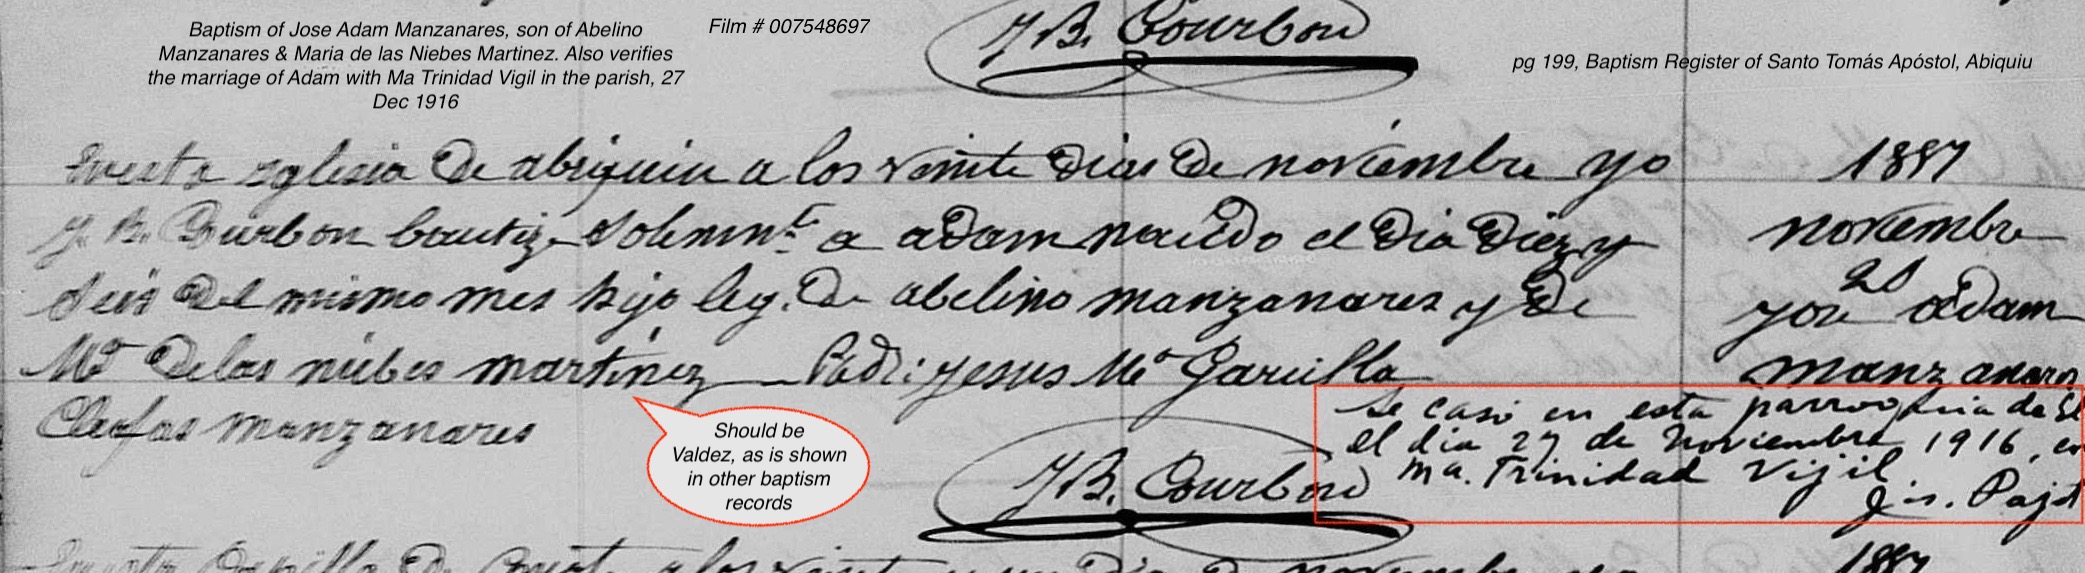 Baptism of Jose Adam Manzanares, son of Abelino
Manzanares & Maria de las Niebes Martinez. Also verifies
the marriage of Adam with Ma Trinidad Vigil in the parish, 27
Dec 1916
Film # 007548697
pg 199, Baptism Register of Santo Tomás Apóstol, Abiquiu
J B. Courbon
Enesta Iglesia de abiquiu a los veinte dias de noviembre yo
J. B. Courbon bautize Solemnte a adam nacido el dia diez y
seis del mismo mes hijo leg. de abelino manzanares y de
Ma de las niebes martinez Padr: Jesus Ma
Cleofas manzanares
1897
noviembre
20
Jose adam
manzanares
Se casó en esta parroquia de
el dia 27 de Noviembre 1916, con
Ma. Trinidad Vijil
Should be
Valdez, as is shown
in other baptism
records
J B. Courbon
a los veinte y un dia de noviembre
1897